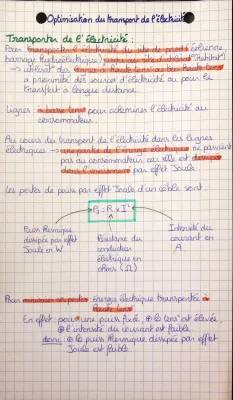 Optimisation du transport de l'électricité
Transporter de l'électricité :
Pour transporter l'électricité du site de (éolienne
barrage hydroélectrique)
→ utilisation des lignes à haute tension
à proximité des sources d'électricité ou pour le
transport à longue distance.
Lignes à basse tens° pour acheminer l'électricité au
consommateur.
Au cours du transport de l'électricité dans les lignes
électriques → une partie de l'énergie électrique ne parvient
pas au consommateur car elle est dissipée
dans l'environnement par effet Joule.
Les pertes de puiss par effet Joule d'un câble sont :
PJ = R x I²
Puiss thermique
dissipée par effet
Joule en W
Résistance du
conducteur
électrique en
ohms (Ω)
Intensité du
courant en
A
Pour minimiser ces pertes énergie électrique transportée à
haute tens°
En effet, pour une puiss fixée, ⊕ la tens° est élevée,
⊕ l'intensité du courant est faible
donc ⊕ la puiss thermique dissipée par effet
Joule est faible.